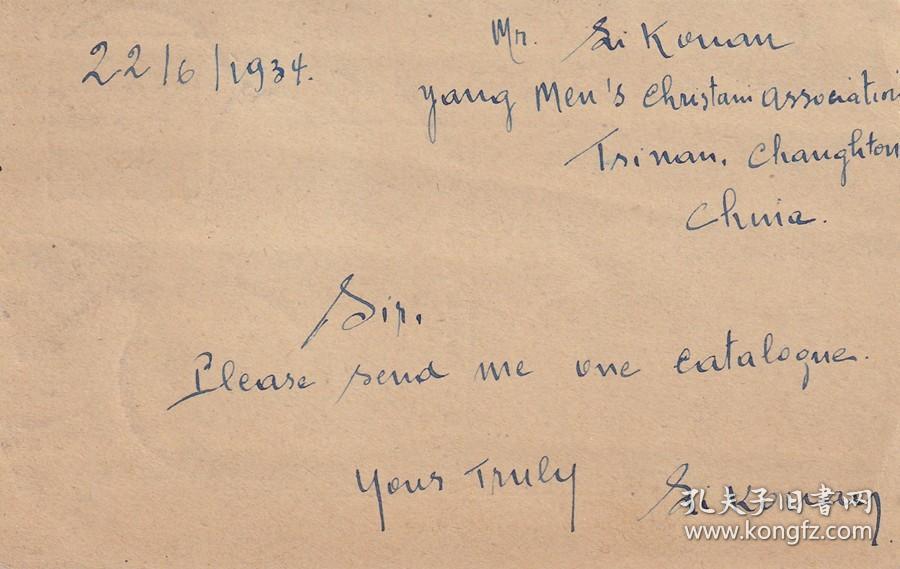 22/6/1934.
Mr. Li Kouan
yang Men's Christain Association
Tsinan, Changhton
China.
Sir.
Please send me one catalogue.
Yous Truly
Li Kouan
孔夫子旧书网
www.kongfz.com